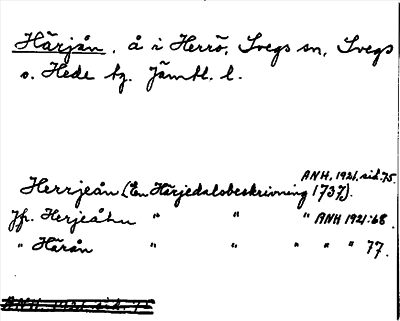 Härjån, å i Herrö, Svegs sn, Svegs
o. Hede tg. Jämtl. l.
ANH, 1921, sid. 75.
Herrjeån (En Härjedalsbeskrivning 1737).
Jfr. Herjeåhn " " " ANH 1921:68.
" Härån " " " " " 77.
ANH. 1921. sid. 75